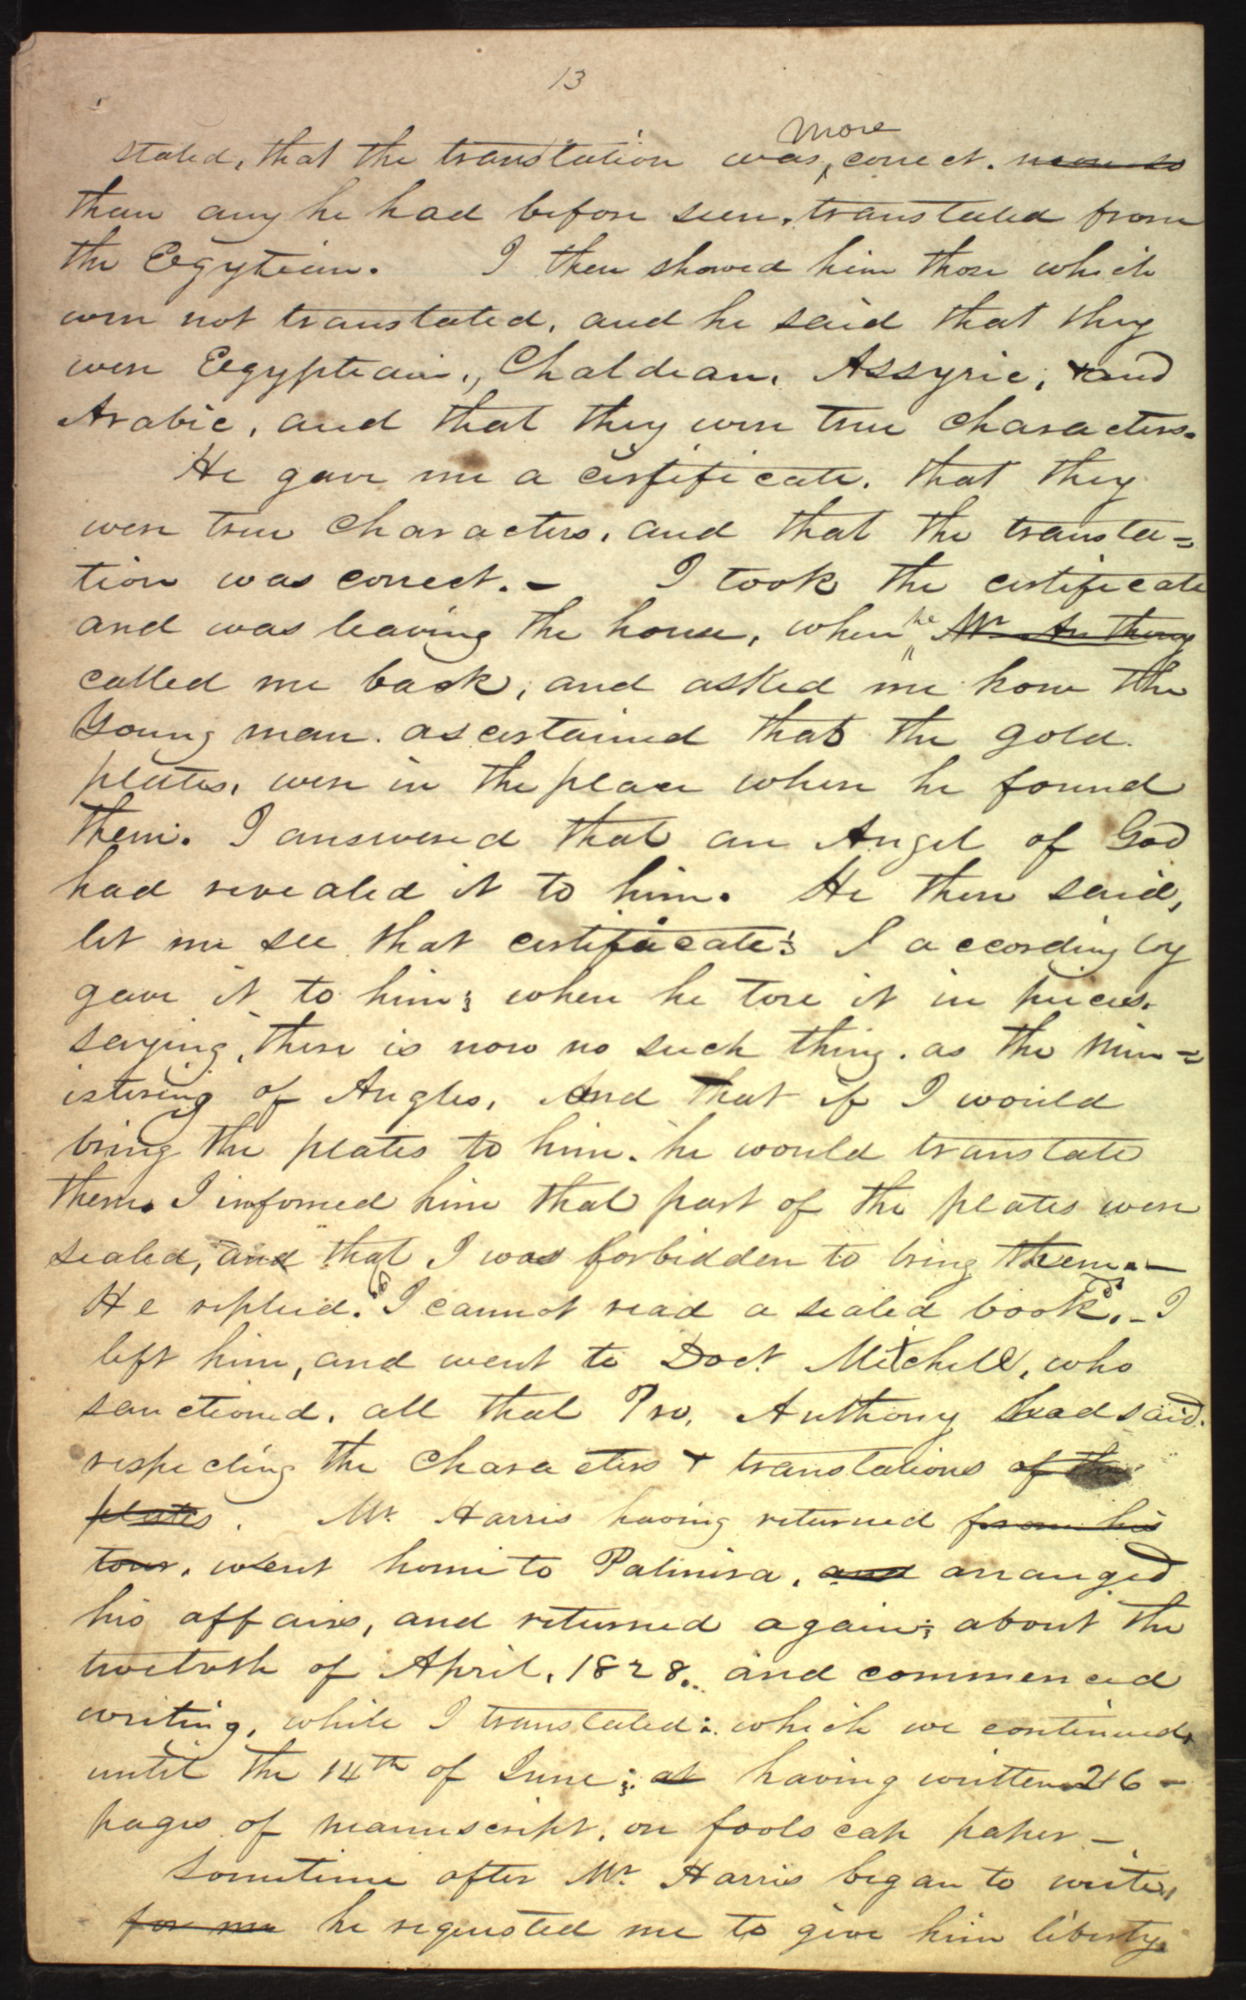 13
more
stated, that the translation was, correct. more so
than any he had before seen, translated from
the Egytian. I then showed him those which
were not translated, and he said that they
were Egyptian, Chaldean, Assyric, and
Arabic, and that they were true characters.
He gave me a certificate, that they
were true characters, and that the transla=
tion was correct. - I took the certificate
and was leaving the house, when he Mr Anthony
called me back, and asked me how the
young man ascertained that the gold
plates, were in the place where he found
them. I answered that an Angel of God
had revealed it to him. He then said,
let me see that certificate; I accordingly
gave it to him; when he tore it in pieces,
saying, there is now no such thing, as the min=
istering of Angles, And that if I would
bring the plates to him, he would translate
them. I informed him that part of the plates were
sealed, and that I was forbidden to bring them. -
He replied, "I cannot read a sealed book". - I
left him, and went to Doct. Mitchell, who
sanctioned, all that Pro. Anthony had said,
respecting the characters + translations of the
plates. Mr. Harris having returned from his
tour, went home to Palmira, and arranged
his affairs, and returned again; about the
twelvth of April, 1828. and commenced
writing, while I translated; which we continued,
until the 14th of June; at having written 216 -
pages of manuscript, on fools cap paper -
Sometime after Mr. Harris began to write,
for me he requested me to give him liberty